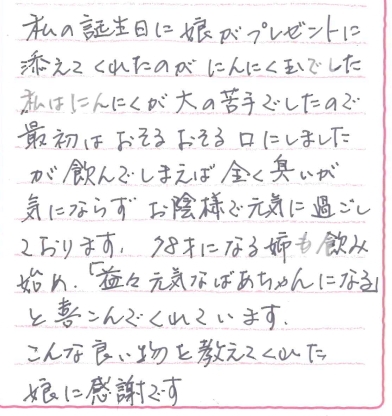 私の誕生日に娘がプレゼントに
添えてくれたのがにんにく玉でした
私はにんにくが大の苦手でしたので
最初はおそるおそる口にしました
が飲んでしまえば全く臭いが
気にならずお陰様で元気に過ごし
ております。78才になる姉も飲み
始め、「益々元気なばあちゃんになる」
と喜こんでくれています。
こんな良い物を教えてくれた
娘に感謝です